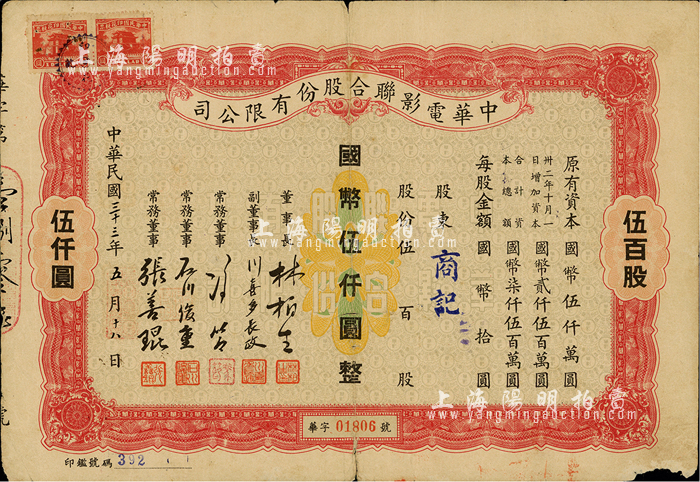 上海陽明拍賣
www.yangmingauction.com
中華電影聯合股份有限公司
伍百股
原有資本 國幣伍仟萬圓
卅二年十月一日增加資本 國幣貳仟伍百萬圓
合計資本總額 國幣柒仟伍百萬圓
每股金額 國幣拾圓
股份伍百股
股東 商記
國幣伍仟圓整
董事長 林柏生
副董事長 川喜多長政
常務董事 馮節
常務董事 石川俊重
常務董事 張善琨
中華民國三十三年五月十六日
伍仟圓
華字 01806 號
印鑑號碼 392
上海陽明拍賣
www.yangmingauction.com